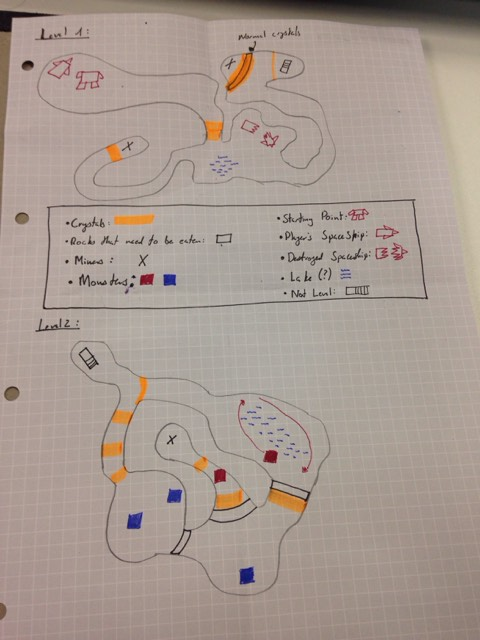 Level 1:
Normal crystals
X
X
• Crystals:
• Rocks that need to be eaten:
• Minions: X
• Monsters:
• Starting Point:
• Player's Spaceship:
• Destroyed Spaceship:
• Lake (?)
• Next Level:
Level 2:
X